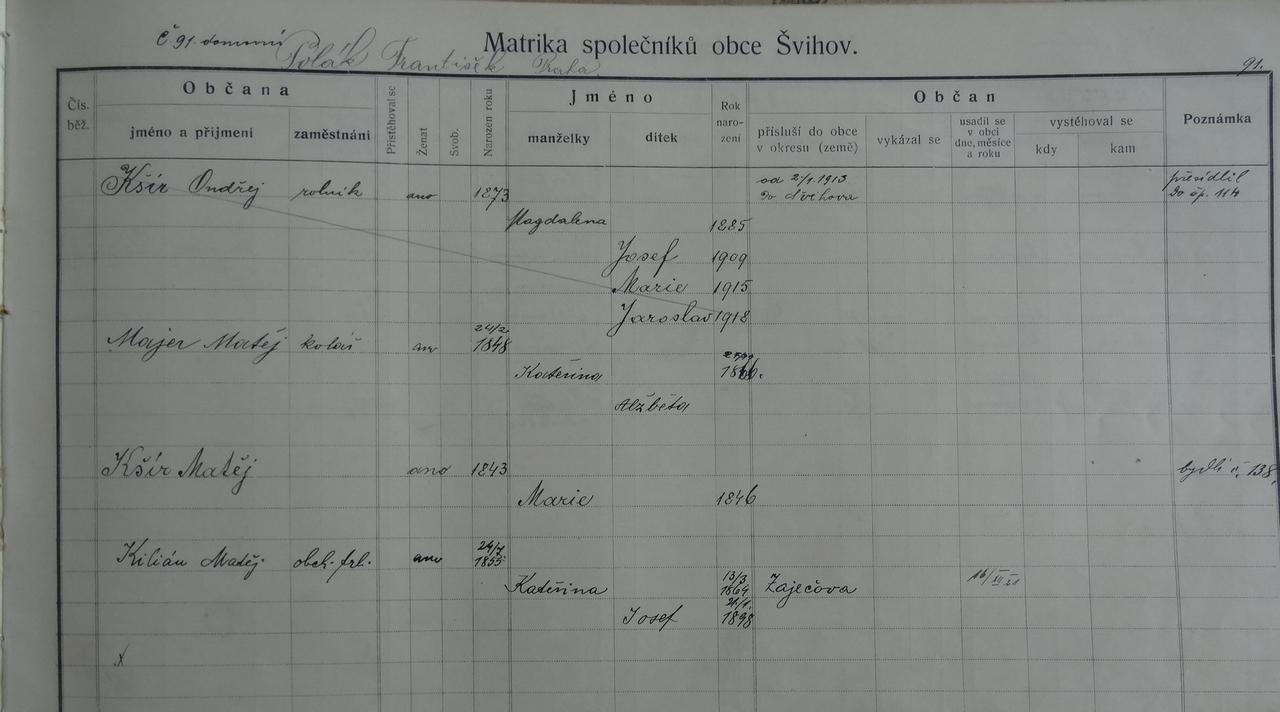 Č 91. domovní
Matrika společníků obce Švihov.
Polák František Praha
91.
Čís. běž.
Občana
jméno a přijmení
zaměstnání
Přistěhoval se
Ženat
Svob.
Narozen roku
Jméno
manželky
dítek
Rok naro- zení
Občan
přísluší do obce v okresu (země)
vykázal se
usadil se v obci dne, měsíce a roku
vystěhoval se
kdy
kam
Poznámka
Kšír Ondřej rolník ano 1873 od 2/1. 1913 Do Švihova přesídlil Do čp. 114
Magdalena 1885
Josef 1909
Marie 1915
Jaroslav 1918
Majer Matěj kolář an 24/2 1848
Kateřina
Alžběta
Kšír Matěj ano 1843 bydlí č. 138.
Marie 1846
Kilián Matěj. obch. ano 24/7 1855
Kateřina 13/3 1864 Zaječova 16/XII 21
Josef 21/1. 1898
x